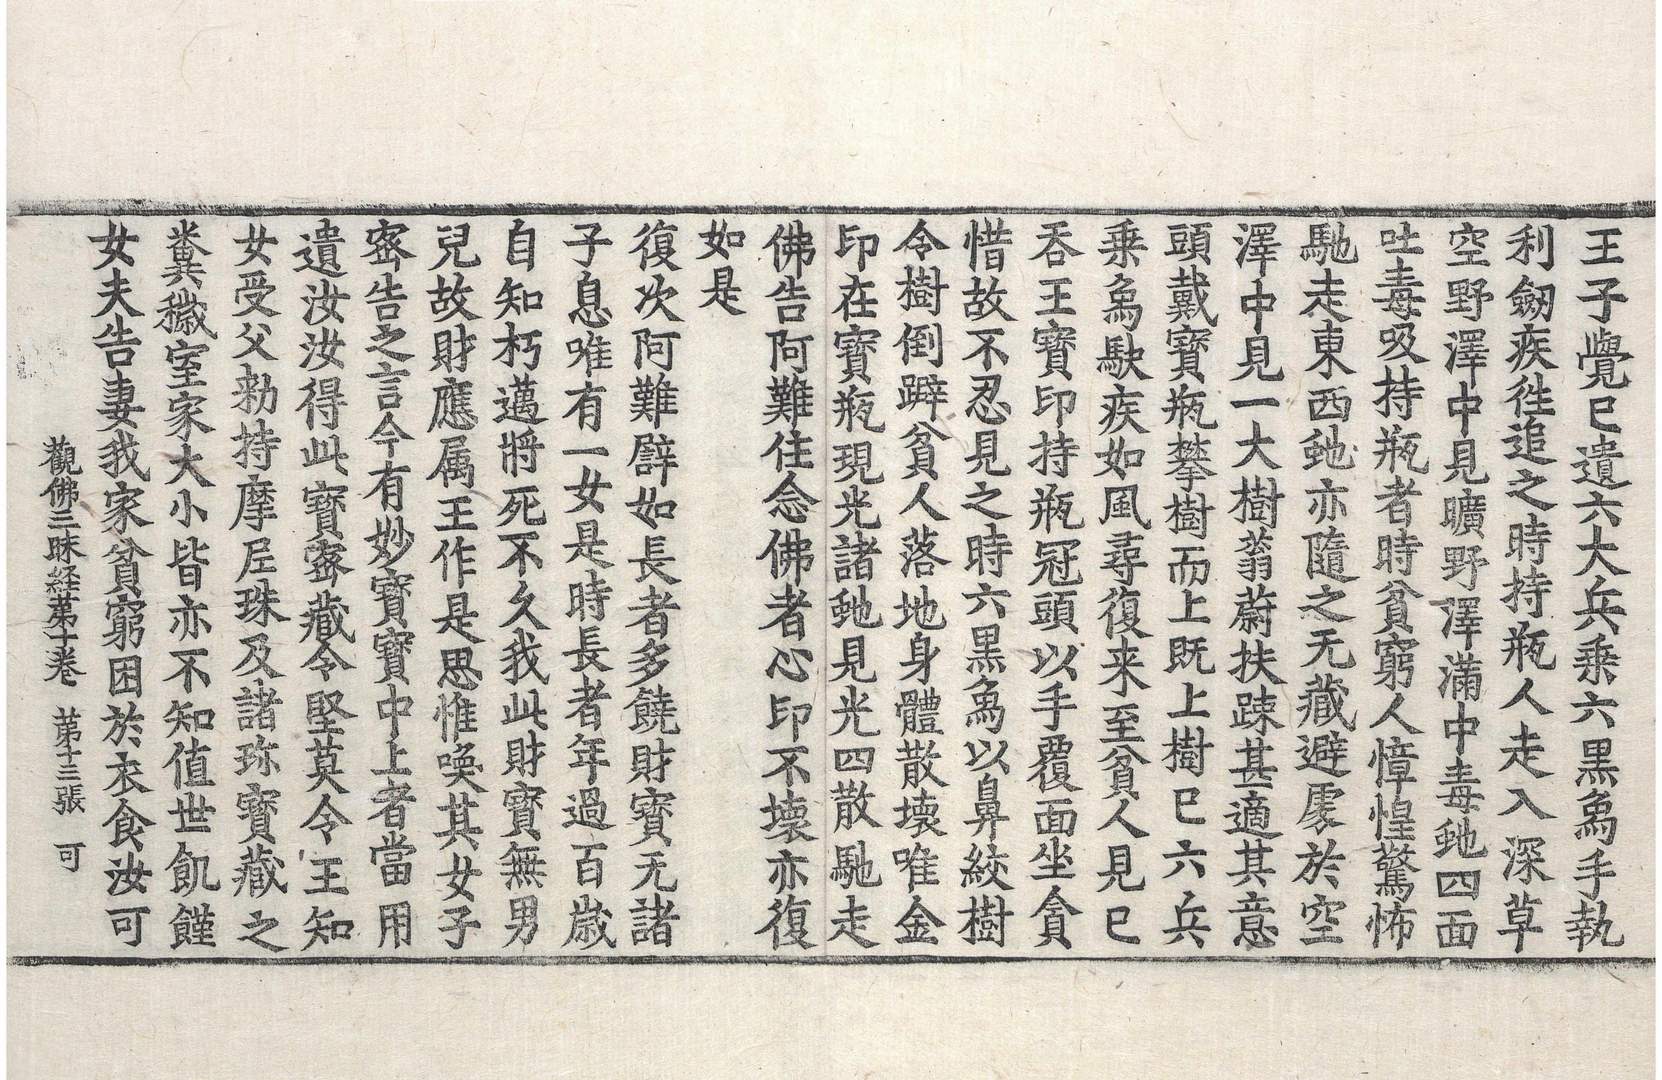 王子覺已遺六大兵乗六黒象手執
利劒疾徃追之時持瓶人走入深草
空野澤中見曠野澤滿中毒虵四面
吐毒吸持瓶者時貧窮人慞惶驚怖
馳走東西虵亦隨之无藏避處於空
澤中見一大樹蓊蔚扶踈甚適其意
頭戴寶瓶攀樹而上既上樹已六兵
乗象駛疾如風尋復来至貧人見已
吞王寶印持瓶冠頭以手覆面坐貪
惜故不忍見之時六黒象以鼻絞樹
令樹倒躃貧人落地身體散壊唯金
印在寶瓶現光諸虵見光四散馳走
佛告阿難住念佛者心印不壊亦復
如是
復次阿難譬如長者多饒財寶无諸
子息唯有一女是時長者年過百歲
自知朽邁將死不久我此財寶無男
兒故財應属王作是思惟喚其女子
宻告之言今有妙寶寶中上者當用
遺汝汝得此寶宻藏令堅莫令王知
女受父勑持摩尼珠及諸珎寶藏之
糞穢室家大小皆亦不知值世飢饉
女夫告妻我家貧窮困於衣食汝可
觀佛三昧経苐十卷　苐十三張　可